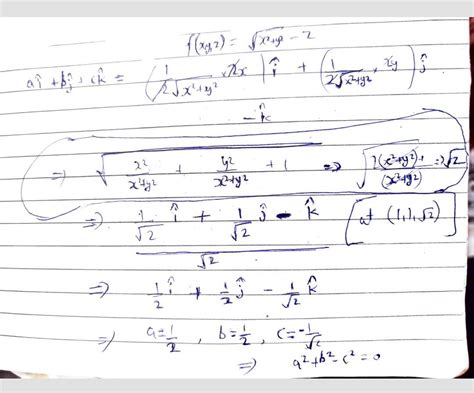 f(x,y,z) = √x²+y² - z
aî + bĵ + ck̂ = (1/2√x²+y² · 2x) î + (1/2√x²+y² · 2y) ĵ
- k̂
⇒ √x²/x²+y² + y²/x²+y² + 1 ⇒ √2(x²+y²)/(x²+y²) ⇒ √2
⇒ 1/√2 î + 1/√2 ĵ - k̂ [at (1,1,√2)]
√2
⇒ 1/2 î + 1/2 ĵ - 1/√2 k̂
⇒ a = 1/2 , b = 1/2 , c = -1/√2
⇒ a² + b² - c² = 0